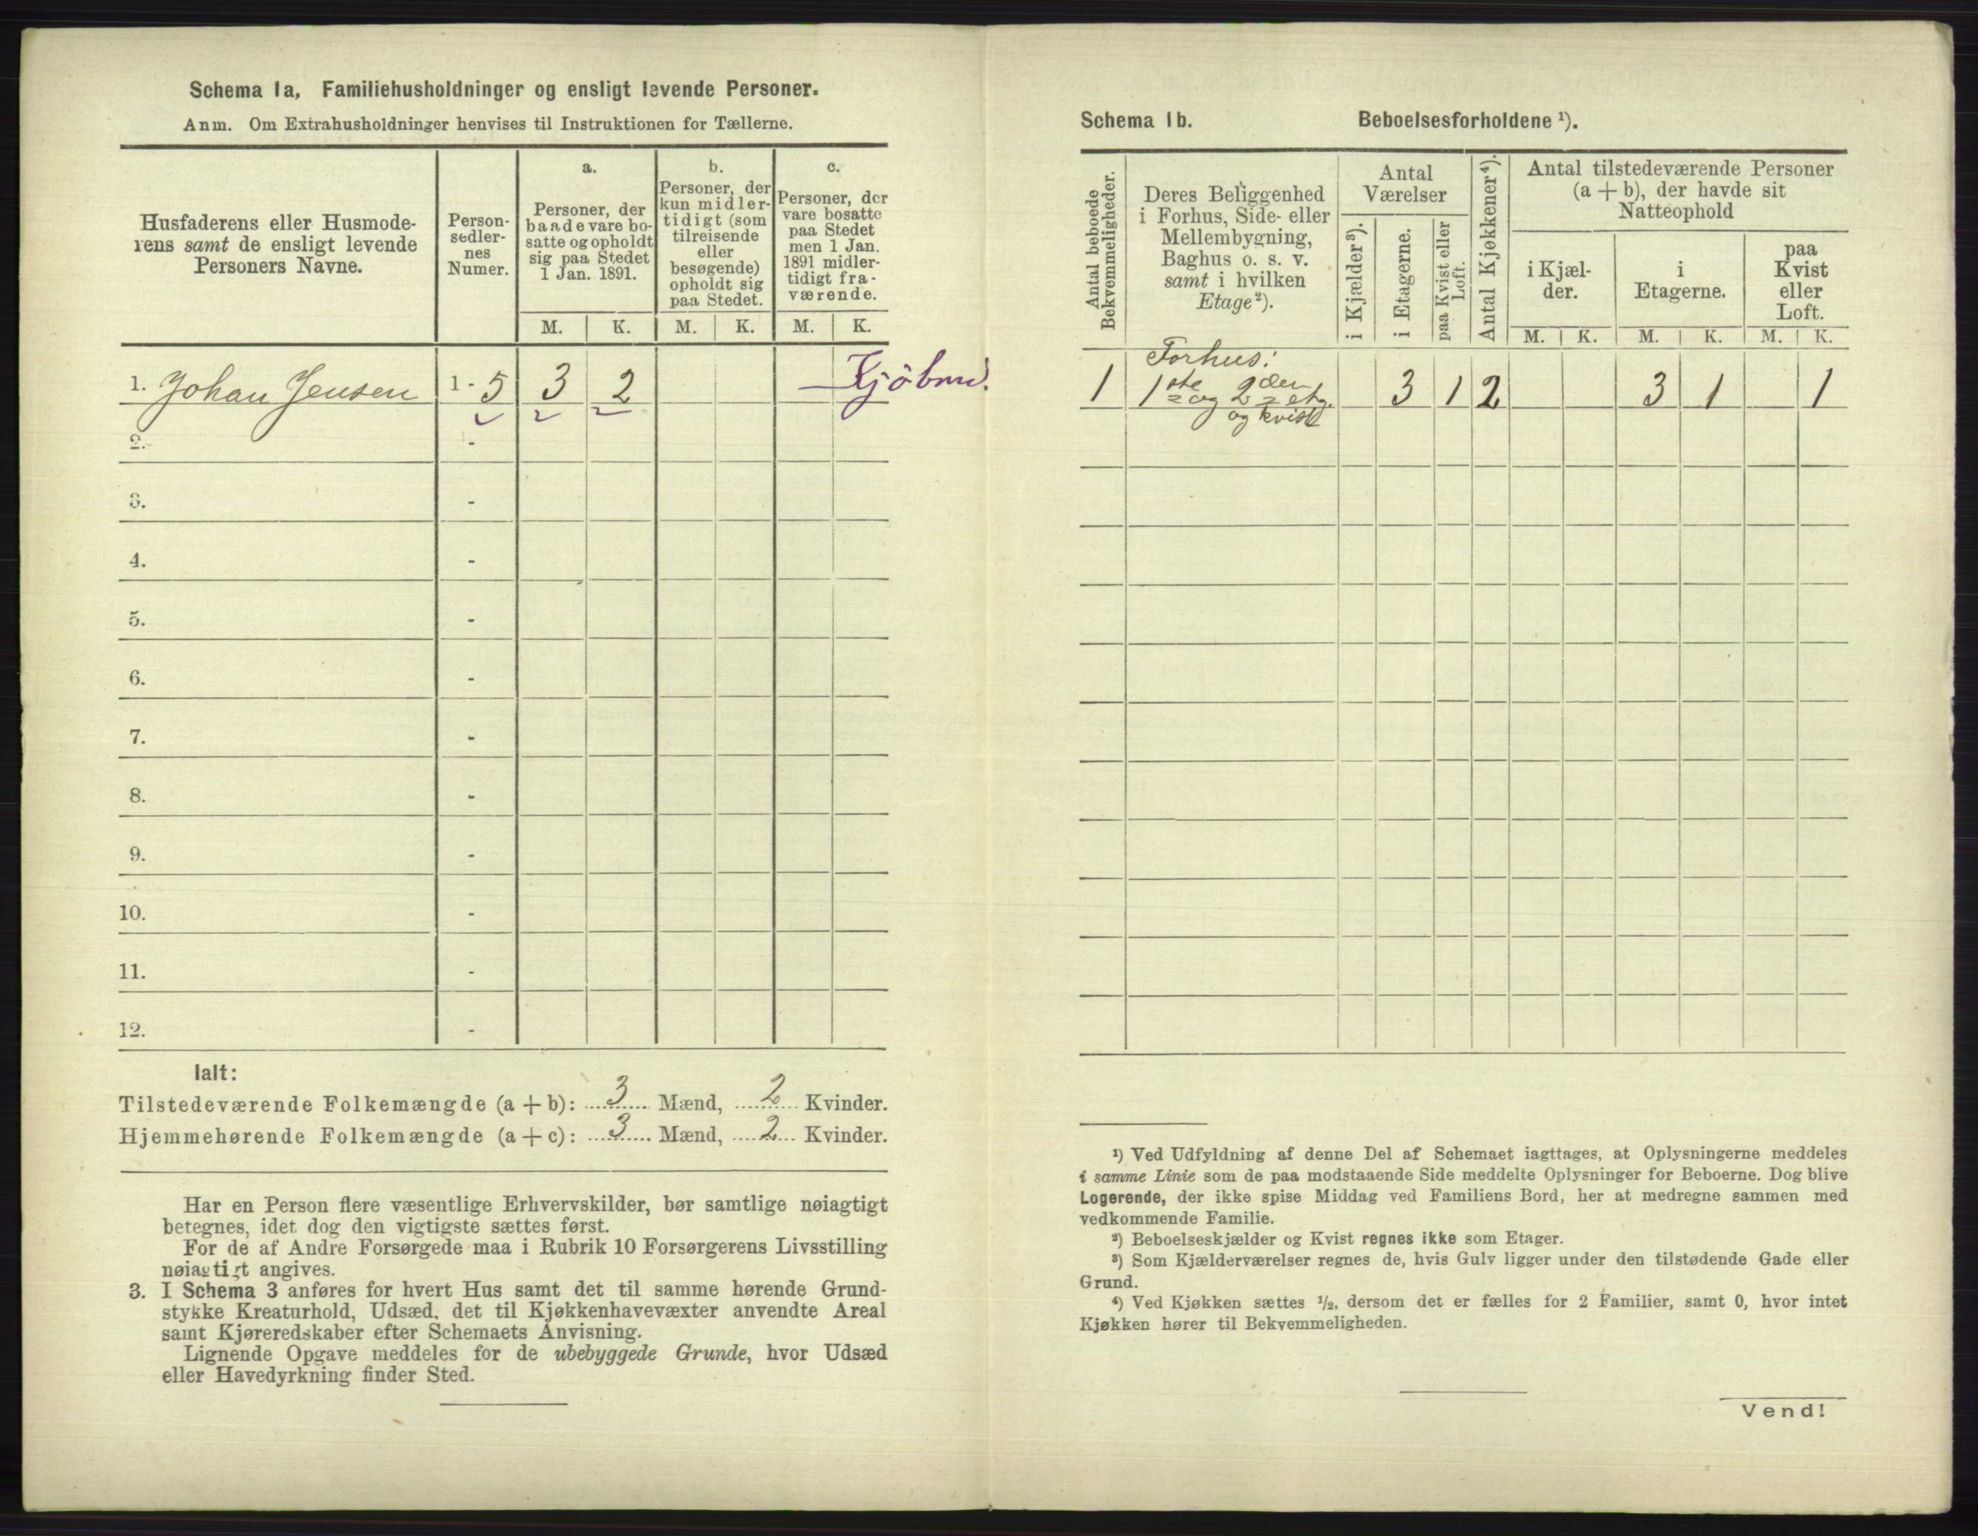 Schema 1a, Familiehusholdninger og ensligt levende Personer.
Anm. Om Extrahusholdninger henvises til Instruktionen for Tællerne.
Husfaderens eller Husmode-
rens samt de ensligt levende
Personers Navne.
Person-
sedler-
nes
Numer.
a.
Personer, der
baade vare bo-
satte og opholdt
sig paa Stedet
1 Jan. 1891.
b.
Personer, der
kun midler-
tidigt (som
tilreisende
eller
besøgende)
opholdt sig
paa Stedet.
c.
Personer, der
vare bosatte
paa Stedet
men 1 Jan.
1891 midler-
tidigt fra-
værende.
M. K. M. K. M. K.
1. Johan Jensen 1 - 5 3 2 Kjøbmd.
2. -
3. -
4. -
5. -
6. -
7. -
8. -
9. -
10. -
11. -
12. -
Ialt:
Tilstedeværende Folkemængde (a + b): 3 Mænd, 2 Kvinder.
Hjemmehørende Folkemængde (a + c): 3 Mænd, 2 Kvinder.
Har en Person flere væsentlige Erhvervskilder, bør samtlige nøiagtigt
betegnes, idet dog den vigtigste sættes først.
For de af Andre Forsørgede maa i Rubrik 10 Forsørgerens Livsstilling
nøiagtigt angives.
3. I Schema 3 anføres for hvert Hus samt det til samme hørende Grund-
stykke Kreaturhold, Udsæd, det til Kjøkkenhavevæxter anvendte Areal
samt Kjøreredskaber efter Schemaets Anvisning.
Lignende Opgave meddeles for de ubebyggede Grunde, hvor Udsæd
eller Havedyrkning finder Sted.
Schema 1b. Beboelsesforholdene ¹).
Antal beboede
Bekvemmeligheder.
Deres Beliggenhed
i Forhus, Side- eller
Mellembygning,
Baghus o. s. v.
samt i hvilken
Etage²).
Antal
Værelser
i Kjælder³).
i Etagerne.
paa Kvist eller
Loft.
Antal Kjøkkener⁴).
Antal tilstedeværende Personer
(a + b), der havde sit
Natteophold
i Kjæl-
der.
i
Etagerne.
paa
Kvist
eller
Loft.
M. K. M. K. M. K.
Forhus:
1 1ste og 2den etg. 3 1 2 3 1 1
og kvist
¹) Ved Udfyldning af denne Del af Schemaet iagttages, at Oplysningerne meddeles
i samme Linie som de paa modstaaende Side meddelte Oplysninger for Beboerne. Dog blive
Logerende, der ikke spise Middag ved Familiens Bord, her at medregne sammen med
vedkommende Familie.
²) Beboelseskjælder og Kvist regnes ikke som Etager.
³) Som Kjælderværelser regnes de, hvis Gulv ligger under den tilstødende Gade eller
Grund.
⁴) Ved Kjøkken sættes ½, dersom det er fælles for 2 Familier, samt 0, hvor intet
Kjøkken hører til Bekvemmeligheden.
Vend!